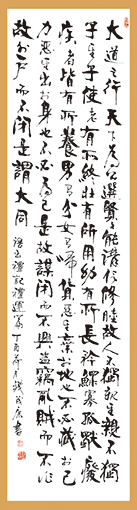 大道之行天下為公選賢與能講信修睦故人不獨親其親不獨
子其子使老有所終壯有所用幼有所長矜鰥寡孤獨廢
疾者皆有所養男有分女有歸貨惡其棄於地也不必藏於己
力惡其不出於身也不必為己是故謀閉而不興盜竊亂賊而不作
故外戶而不閉是謂大同 語出禮記禮運篇 丁亥年 書